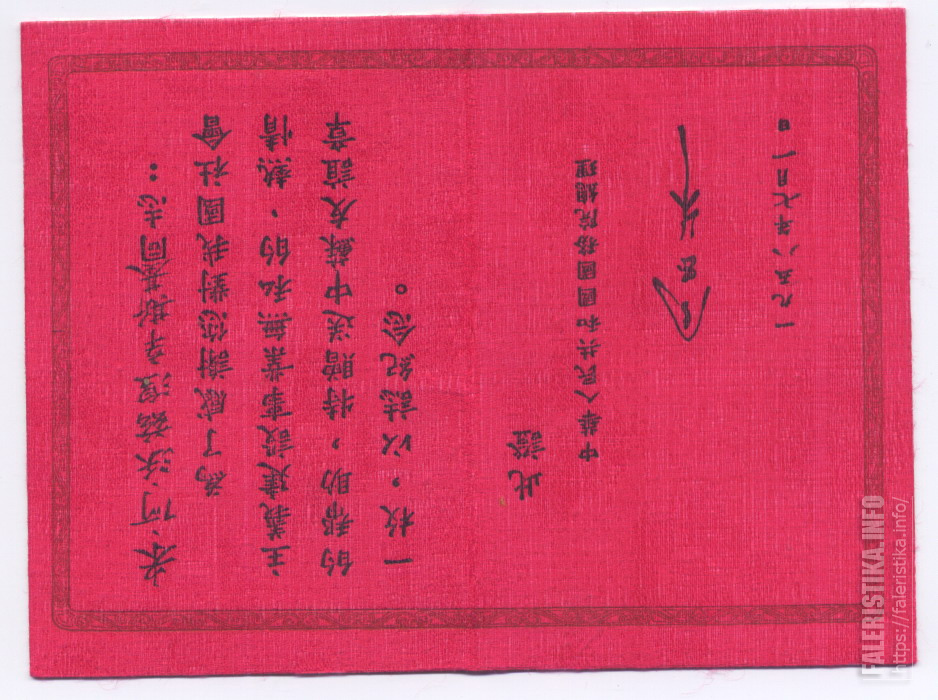 斯基同志：
為了感謝您對我國社會
主義建設事業無私的、熱情
的幫助，特贈送中蘇友誼章
一枚，以誌紀念。
此證
中華人民共和國國務院總理
周恩來
一九五八年七月一日
FALERISTIKA.INFO
https://faleristika.info/